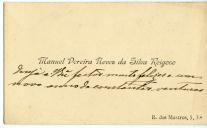 Manuel Pereira Neves da Silva Reigoso
deseja Boas festas muito felizes e um
novo anno de constantes venturas
R. dos Mastros, 5, 3.º